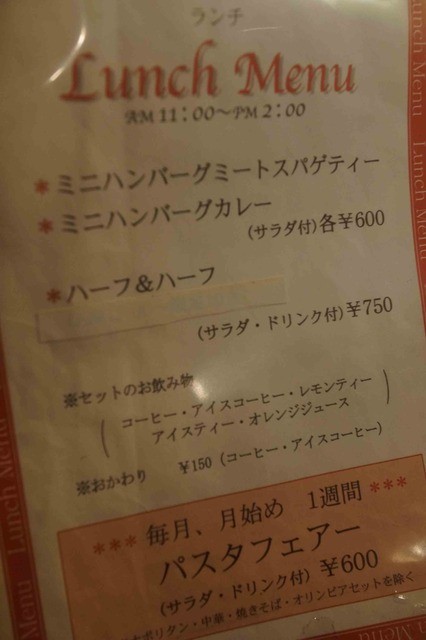 ランチ
Lunch Menu
AM 11：00～PM 2：00
＊ミニハンバーグミートスパゲティー
＊ミニハンバーグカレー
(サラダ付)各￥600
＊ハーフ＆ハーフ
(サラダ・ドリンク付)￥750
※セットのお飲み物
(コーヒー・アイスコーヒー・レモンティー
アイスティー・オレンジジュース)
※おかわり ￥150 (コーヒー・アイスコーヒー)
＊＊＊ 毎月、月始め 1週間 ＊＊＊
パスタフェアー
(サラダ・ドリンク付) ￥600
ポリタン・中華・焼きそば・オリンピアセットを除く
Lunch Menu
Lunch Menu
Lunch Menu